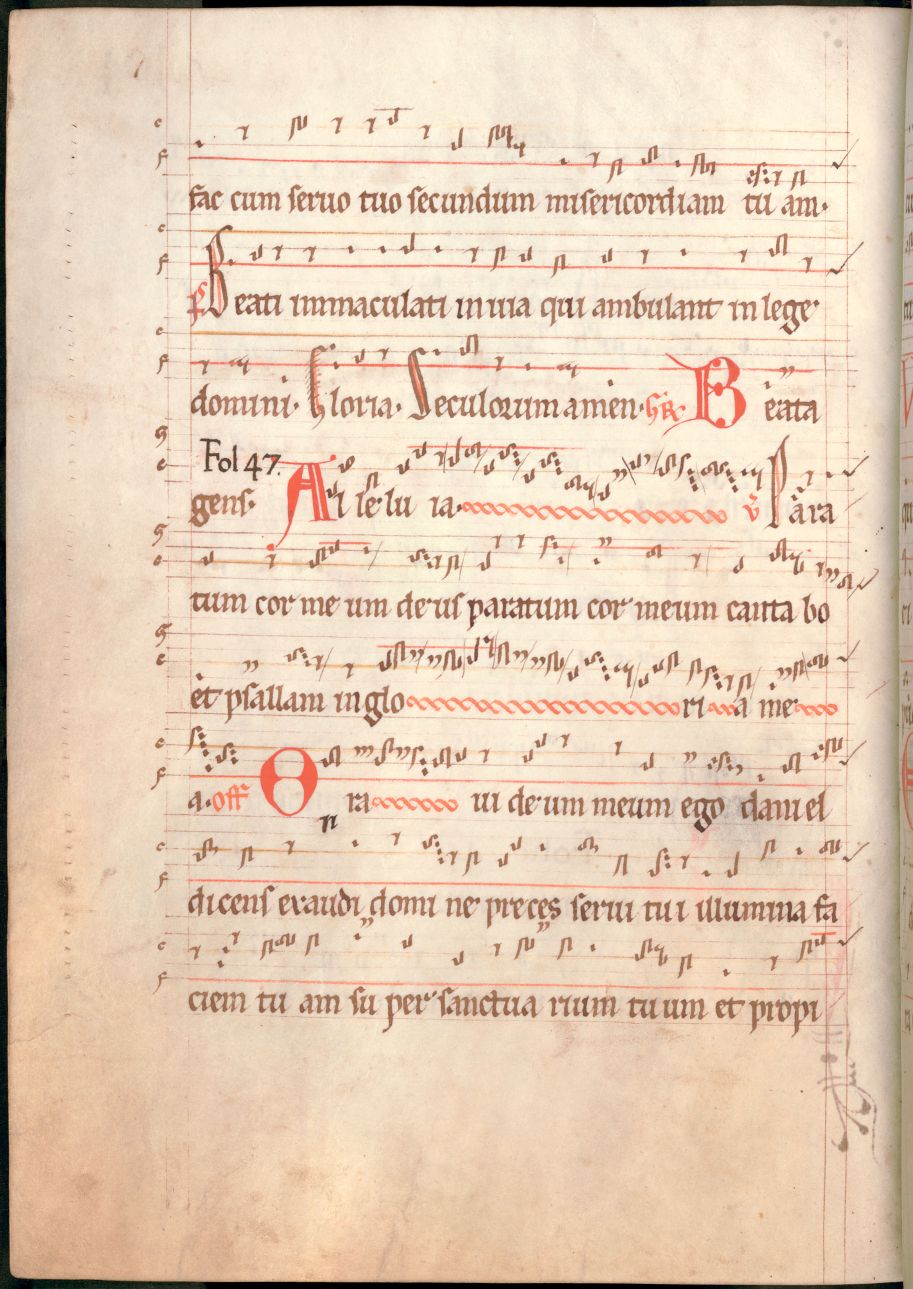 fac cum seruo tuo secundum misericordiam tu am.
ps Beati immaculati in uia qui ambulant in lege
domini. Gloria. Seculorum amen. Gr. Beata
Fol 47.
gens. Al le lu ia. v Para
tum cor me um de us paratum cor meum canta bo
et psallam in glo ri a me
a. off Ora ui de um meum ego dani el
dicens exaudi domi ne preces serui tu i illumina fa
ciem tu am su per sanctua rium tu um et propi